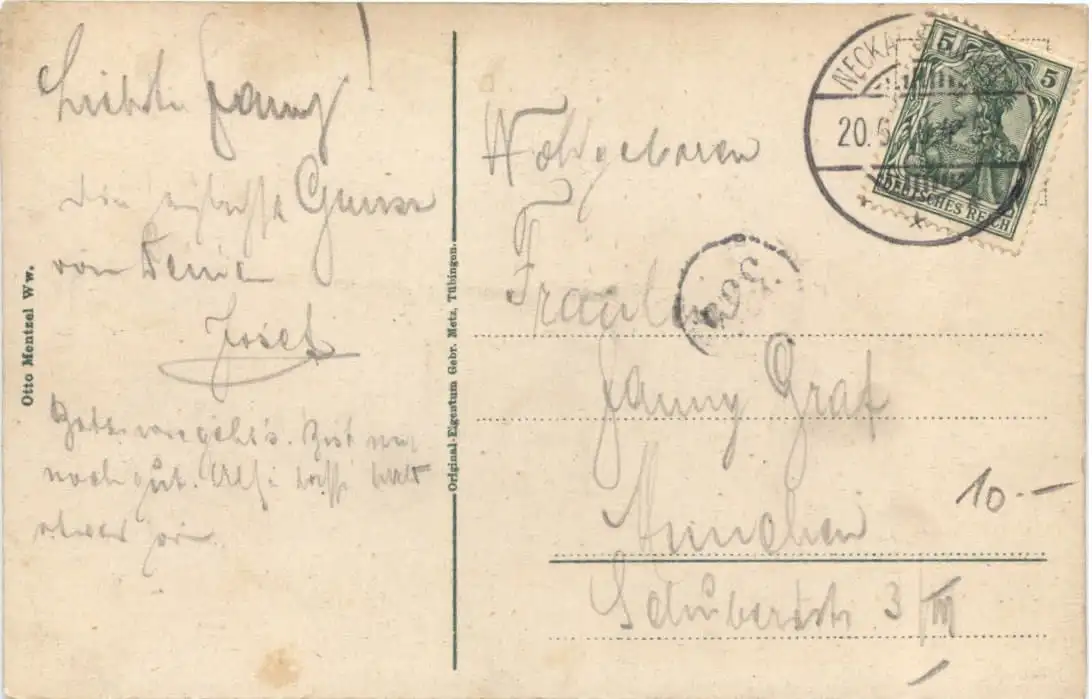 Liebste Fanny!
Die herzlichsten Grüsse
von Deinem
Josef
wie geht's. Bist
noch gut. hoffe
etwas
Otto Mentzel Ww.
Original-Eigentum Gebr. Metz, Tübingen.
NECKA
20.6
5 5
DEUTSCHES REICH
Wohlgeboren
Fräulein
Fanny Graf
München
Schubertstr. 3/III
10.—